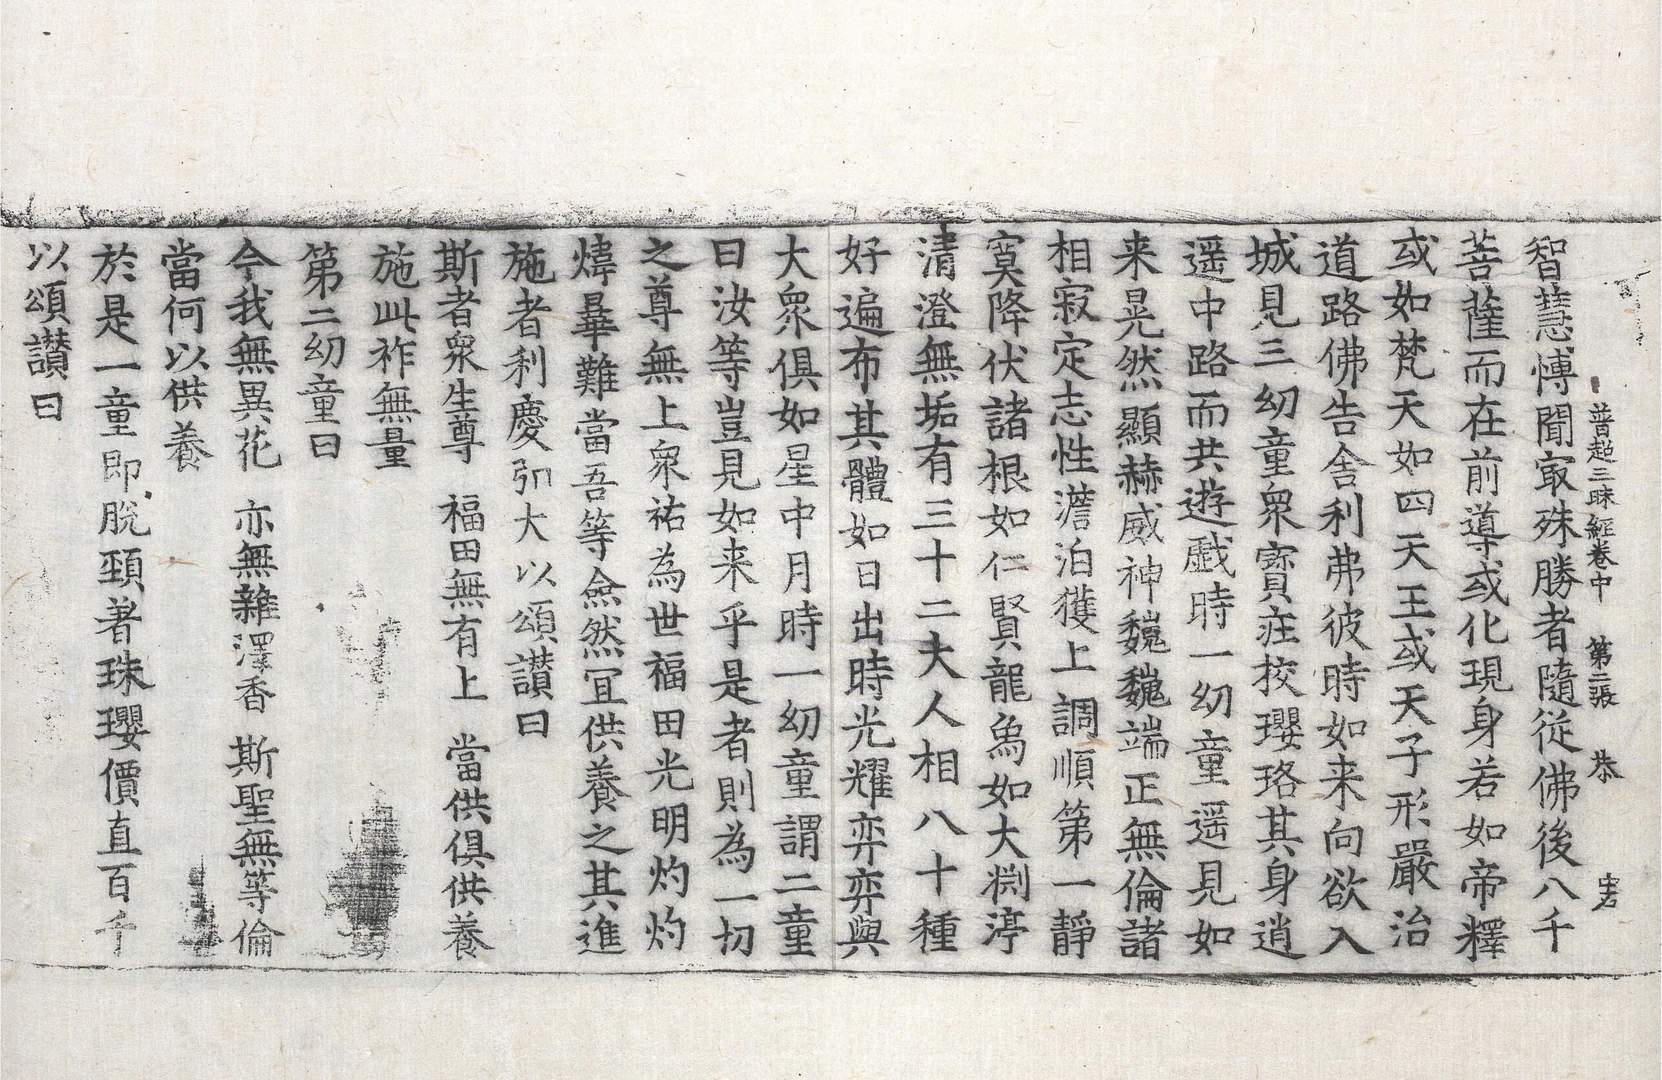 普超三昧經卷中　第二張　恭
智慧博聞㝡殊勝者隨從佛後八千
菩薩而在前導或化現身若如帝釋
或如梵天如四天王或天子形嚴治
道路佛告舍利弗彼時如来向欲入
城見三幼童衆寶莊校瓔珞其身逍
遥中路而共遊戱時一幼童遥見如
来晃然顯赫威神巍巍端正無倫諸
相寂定志性澹泊獲上調順第一靜
寞降伏諸根如仁賢龍爲如大渕渟
清澄無垢有三十二大人相八十種
好遍布其體如日出時光耀弈弈與
大衆俱如星中月時一幼童謂二童
曰汝等豈見如来乎是者則為一切
之尊無上衆祐為世福田光明灼灼
煒曅難當吾等僉然冝供養之其進
施者利慶弘大以頌讃曰
斯者衆生尊　福田無有上　當供俱供養
施此祚無量
第二幼童曰
今我無異花　亦無雜澤香　斯聖無等倫
當何以供養
於是一童即脫頸著珠瓔價直百千
以頌讃曰